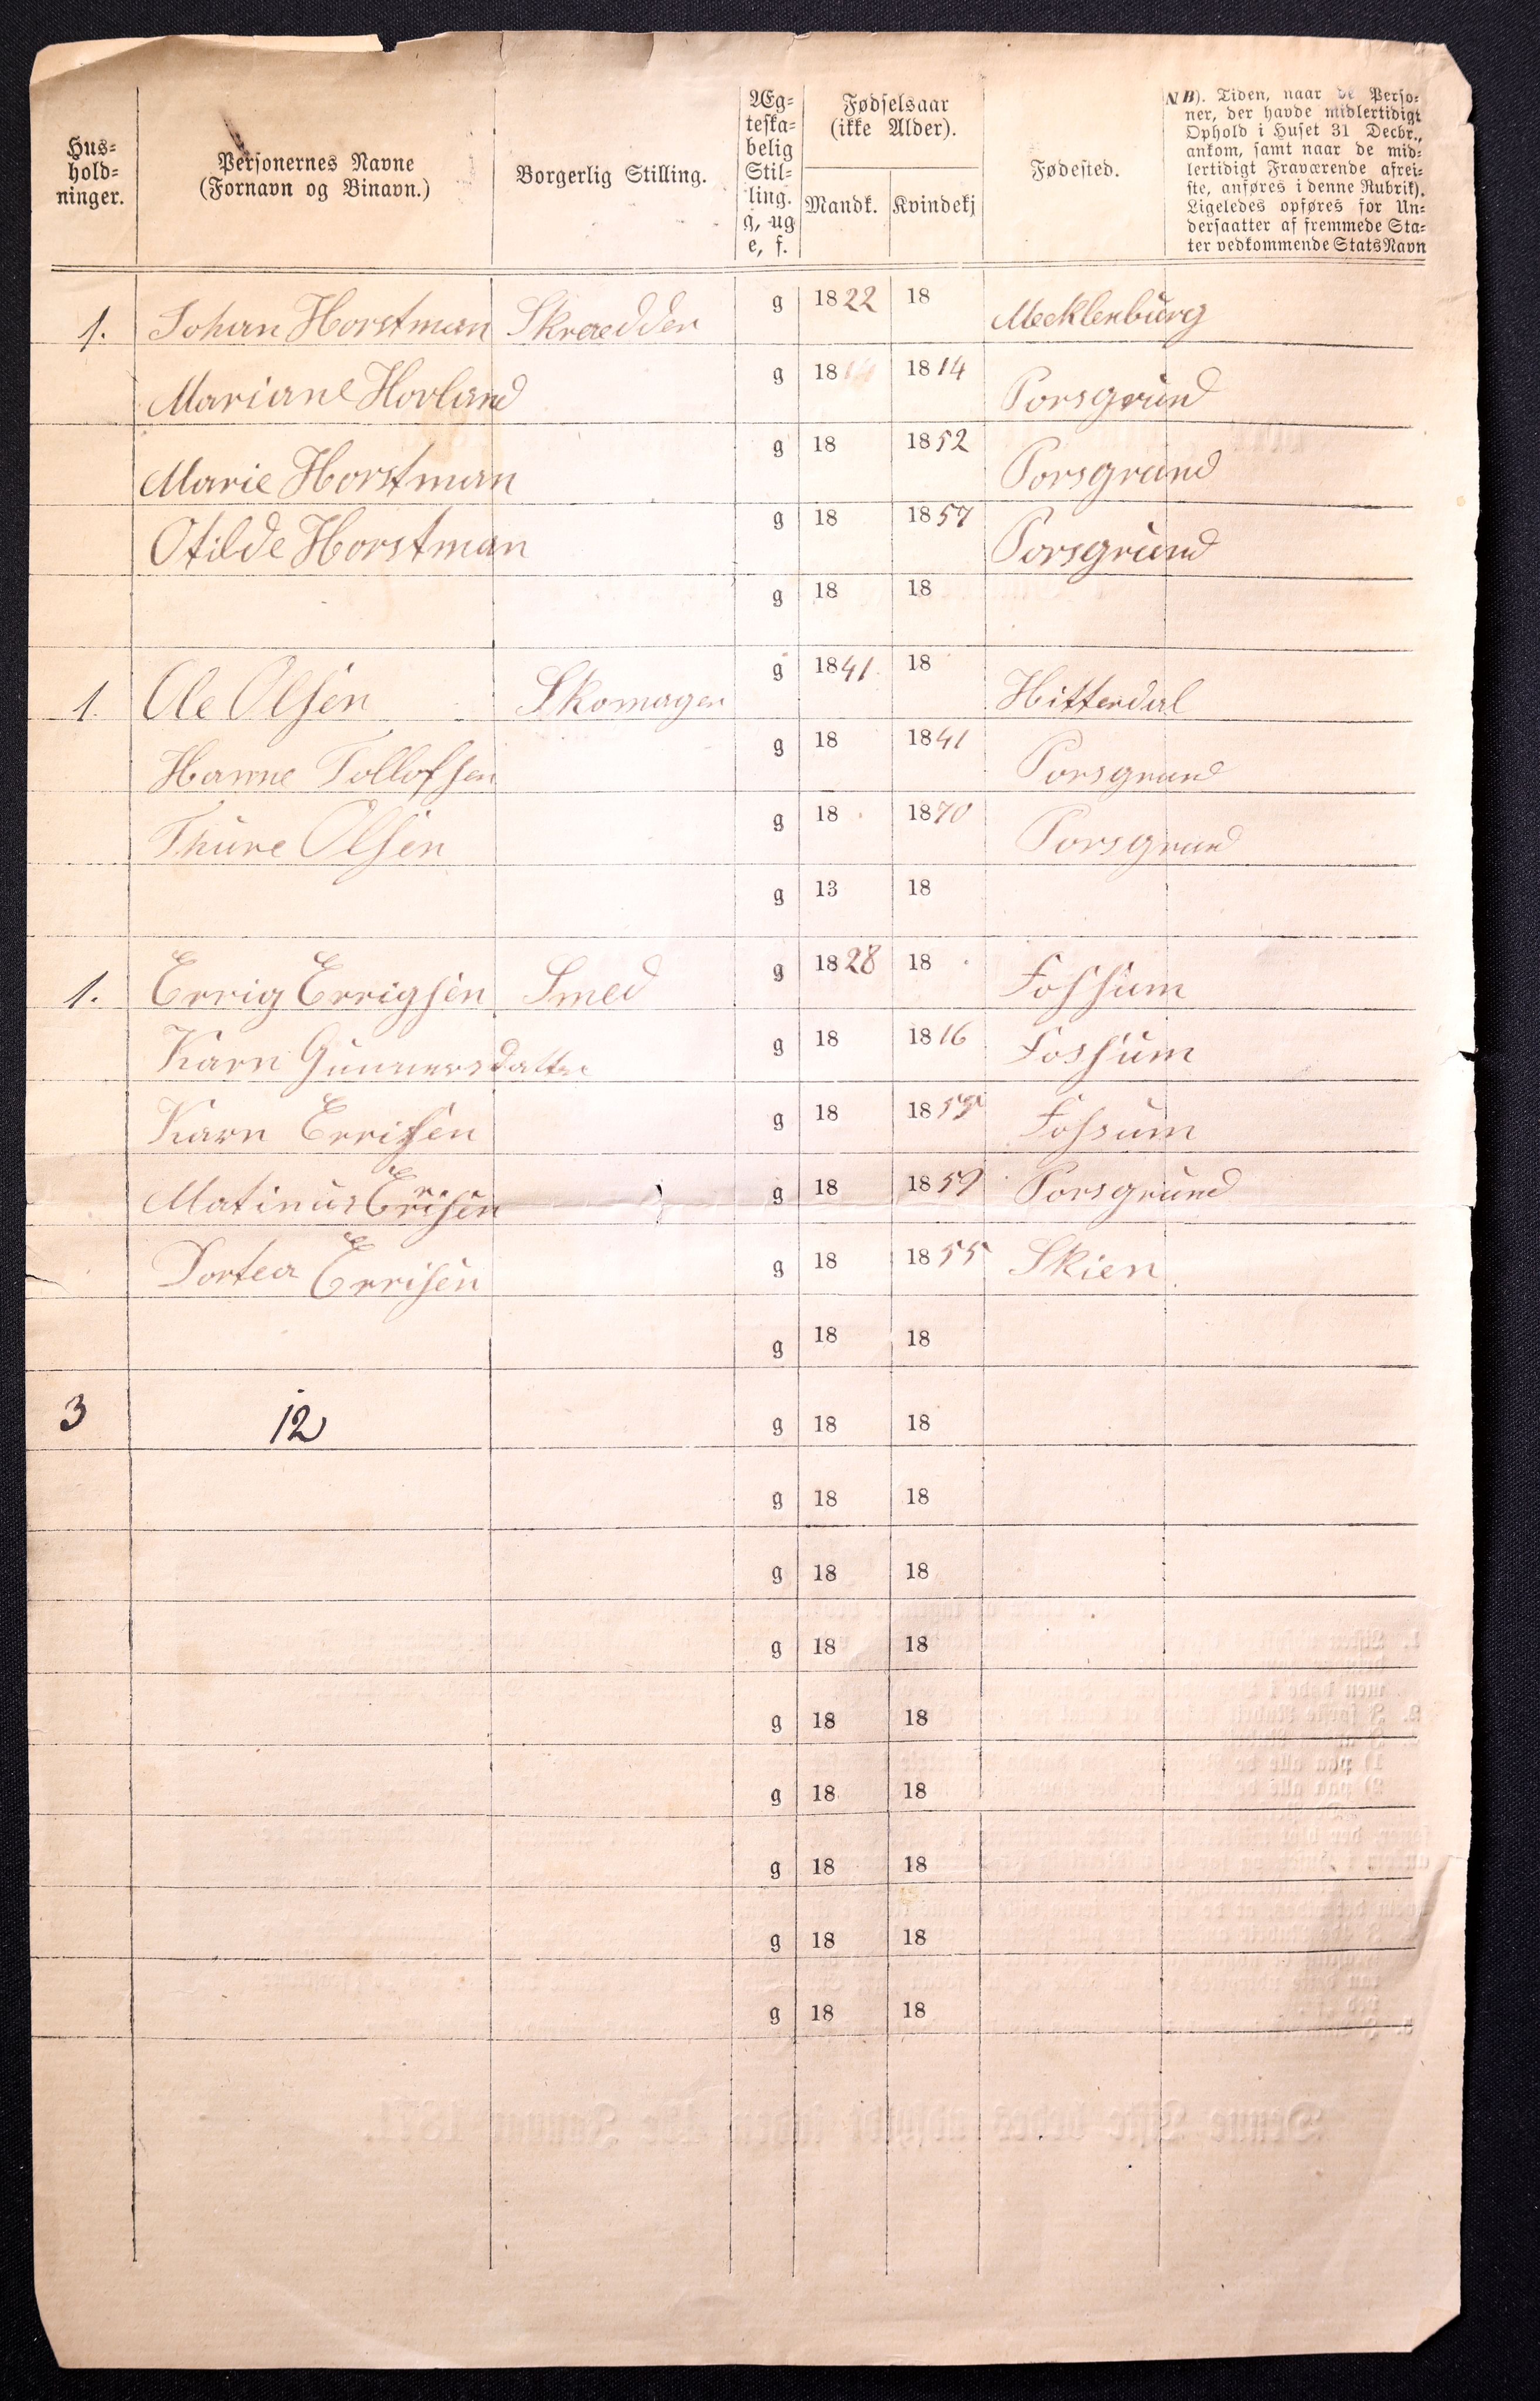 Hus=
hold=
ninger.
Personernes Navne
(Fornavn og Binavn.)
Borgerlig Stilling.
Æg=
teska=
belig
Stil=
ling.
g, ug
e, f.
Fødselsaar
(ikke Alder).
Mandk. Kvindekj
Fødested.
NB). Tiden, naar de Perso=
ner, der havde midlertidigt
Ophold i Huset 31 Decbr.,
ankom, samt naar de mid=
lertidigt Fraværende afrei=
ste, anføres i denne Rubrik).
Ligeledes opføres for Un=
dersaatter af fremmede Sta=
ter vedkommende Stats Navn
1. Johan Horstman Skrædder g 1822 18 Mecklenburg
Mariane Hovland g 1814 1814 Porsgrund
Marie Horstman g 18 1852 Porsgrund
Otilde Horstman g 18 1857 Porsgrund
g 18 18
1. Ole Olsen Skomager g 1841. 18 Hitterdal
Hanne Tollofsen g 18 1841 Porsgrund
Thure Olsen g 18 1870 Porsgrund
g 13 18
1. Errig Errigsen Smed g 1828 18 Fossum
Karn Gunnersdatter g 18 1816 Fossum
Karn Errisen g 18 1855 Fossum
Matinus Errisen g 18 1859 Porsgrund
Dortea Errisen g 18 1855 Skien
g 18 18
3 12 g 18 18
g 18 18
g 18 18
g 18 18
g 18 18
g 18 18
g 18 18
g 18 18
g 18 18